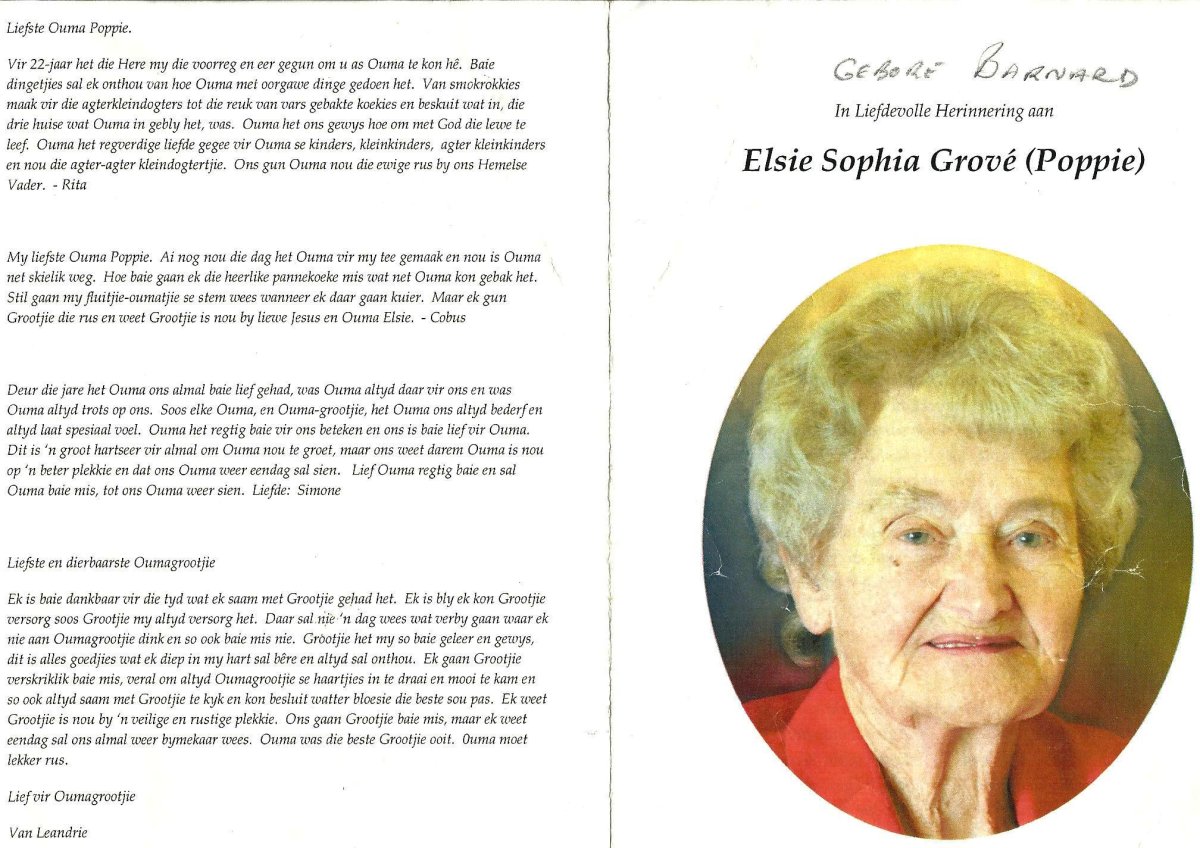 Liefste Ouma Poppie.
Vir 22-jaar het die Here my die voorreg en eer gegun om u as Ouma te kon hê.  Baie
dingetjies sal ek onthou van hoe Ouma met oorgawe dinge gedoen het.  Van smokrokkies
maak vir die agterkleindogters tot die reuk van vars gebakte koekies en beskuit wat in, die
drie huise wat Ouma in gebly het, was.  Ouma het ons gewys hoe om met God die lewe te
leef.  Ouma het regverdige liefde gegee vir Ouma se kinders, kleinkinders,  agter kleinkinders
en nou die agter-agter kleindogtertjie.  Ons gun Ouma nou die ewige rus by ons Hemelse
Vader.  - Rita
My liefste Ouma Poppie.  Ai nog nou die dag het Ouma vir my tee gemaak en nou is Ouma
net skielik weg.  Hoe baie gaan ek die heerlike pannekoeke mis wat net Ouma kon gebak het.
Stil gaan my fluitjie-oumatjie se stem wees wanneer ek daar gaan kuier.  Maar ek gun
Grootjie die rus en weet Grootjie is nou by liewe Jesus en Ouma Elsie.  - Cobus
Deur die jare het Ouma ons almal baie lief gehad, was Ouma altyd daar vir ons en was
Ouma altyd trots op ons.  Soos elke Ouma, en Ouma-grootjie, het Ouma ons altyd bederf en
altyd laat spesiaal voel.  Ouma het regtig baie vir ons beteken en ons is baie lief vir Ouma.
Dit is ‘n groot hartseer vir almal om Ouma nou te groet, maar ons weet darem Ouma is nou
op ‘n beter plekkie en dat ons Ouma weer eendag sal sien.   Lief Ouma regtig baie en sal
Ouma baie mis, tot ons Ouma weer sien.  Liefde:  Simone
Liefste en dierbaarste Oumagrootjie
Ek is baie dankbaar vir die tyd wat ek saam met Grootjie gehad het.  Ek is bly ek kon Grootjie
versorg soos Grootjie my altyd versorg het.  Daar sal nie ‘n dag wees wat verby gaan waar ek
nie aan Oumagrootjie dink en so ook baie mis nie.  Grootjie het my so baie geleer en gewys,
dit is alles goedjies wat ek diep in my hart sal bêre en altyd sal onthou.  Ek gaan Grootjie
verskriklik baie mis, veral om altyd Oumagrootjie se haartjies in te draai en mooi te kam en
so ook altyd saam met Grootjie te kyk en kon besluit watter bloesie die beste sou pas.  Ek weet
Grootjie is nou by ‘n veilige en rustige plekkie.  Ons gaan Grootjie baie mis, maar ek weet
eendag sal ons almal weer bymekaar wees.  Ouma was die beste Grootjie ooit.  0uma moet
lekker rus.
Lief vir Oumagrootjie
Van Leandrie
GEBORE BARNARD
In Liefdevolle Herinnering aan
Elsie Sophia Grové (Poppie)